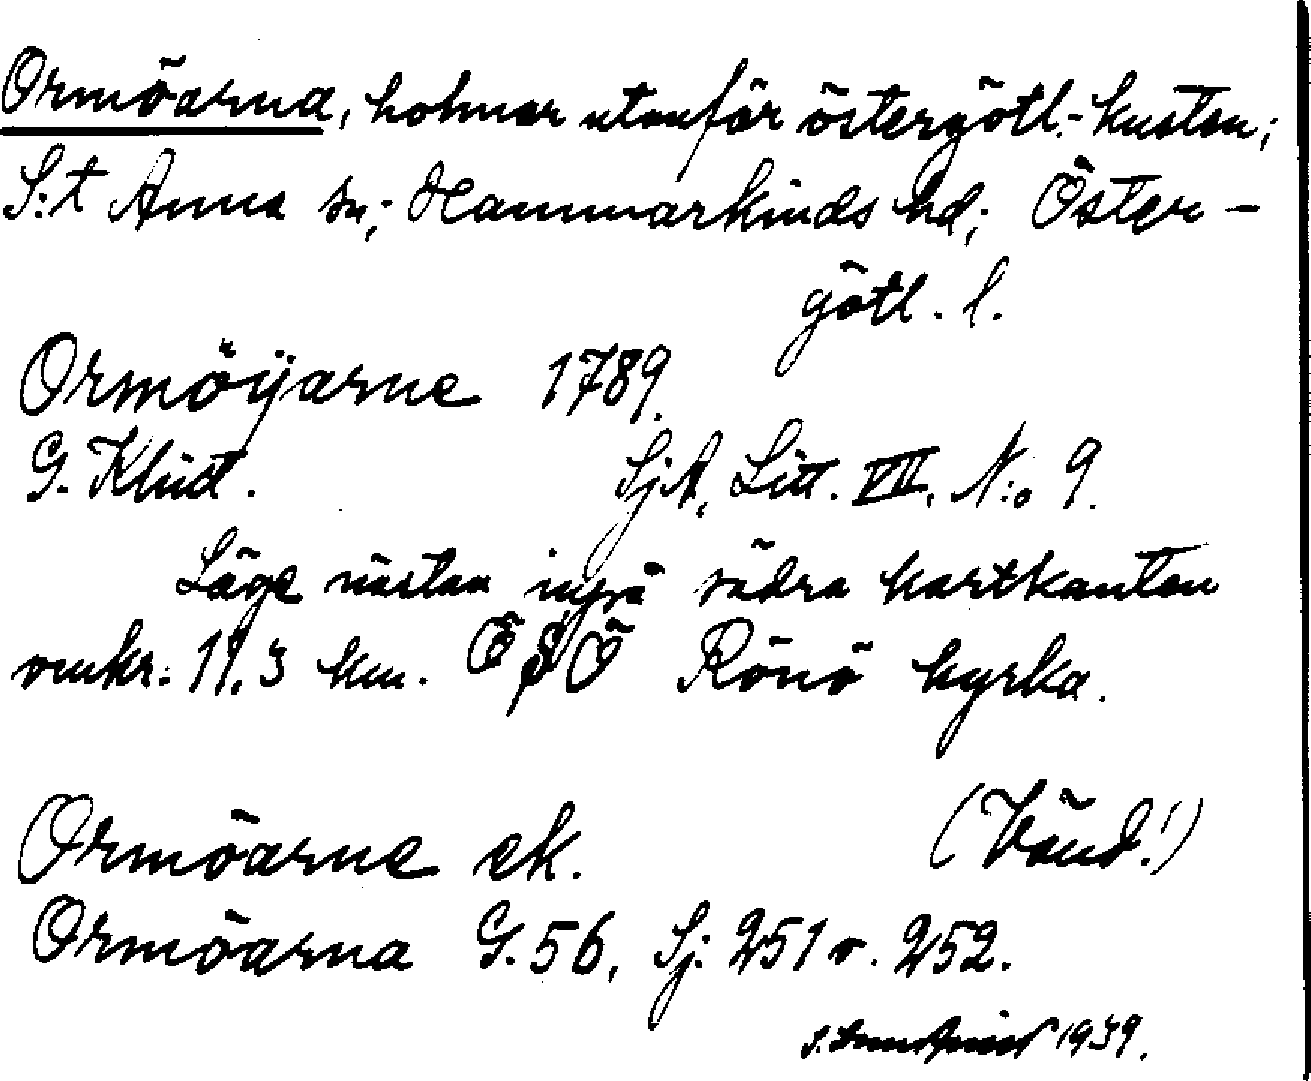 Ormöarna, holmar utanför östergötl.-kusten;
S:t Anna sn; Hammarkinds hd; Öster-
götl. l.
Ormöÿarne 1789.
G. Klint. SjA, Litt. VII. N:o 9.
Läge nästan inpå södra kartkanten
omkr. 11,3 km. ÖSÖ Rönö kyrka.
Ormöarne ek. (Vänd!)
Ormöarna G. 56, Sj: 251 o. 252.
1939.